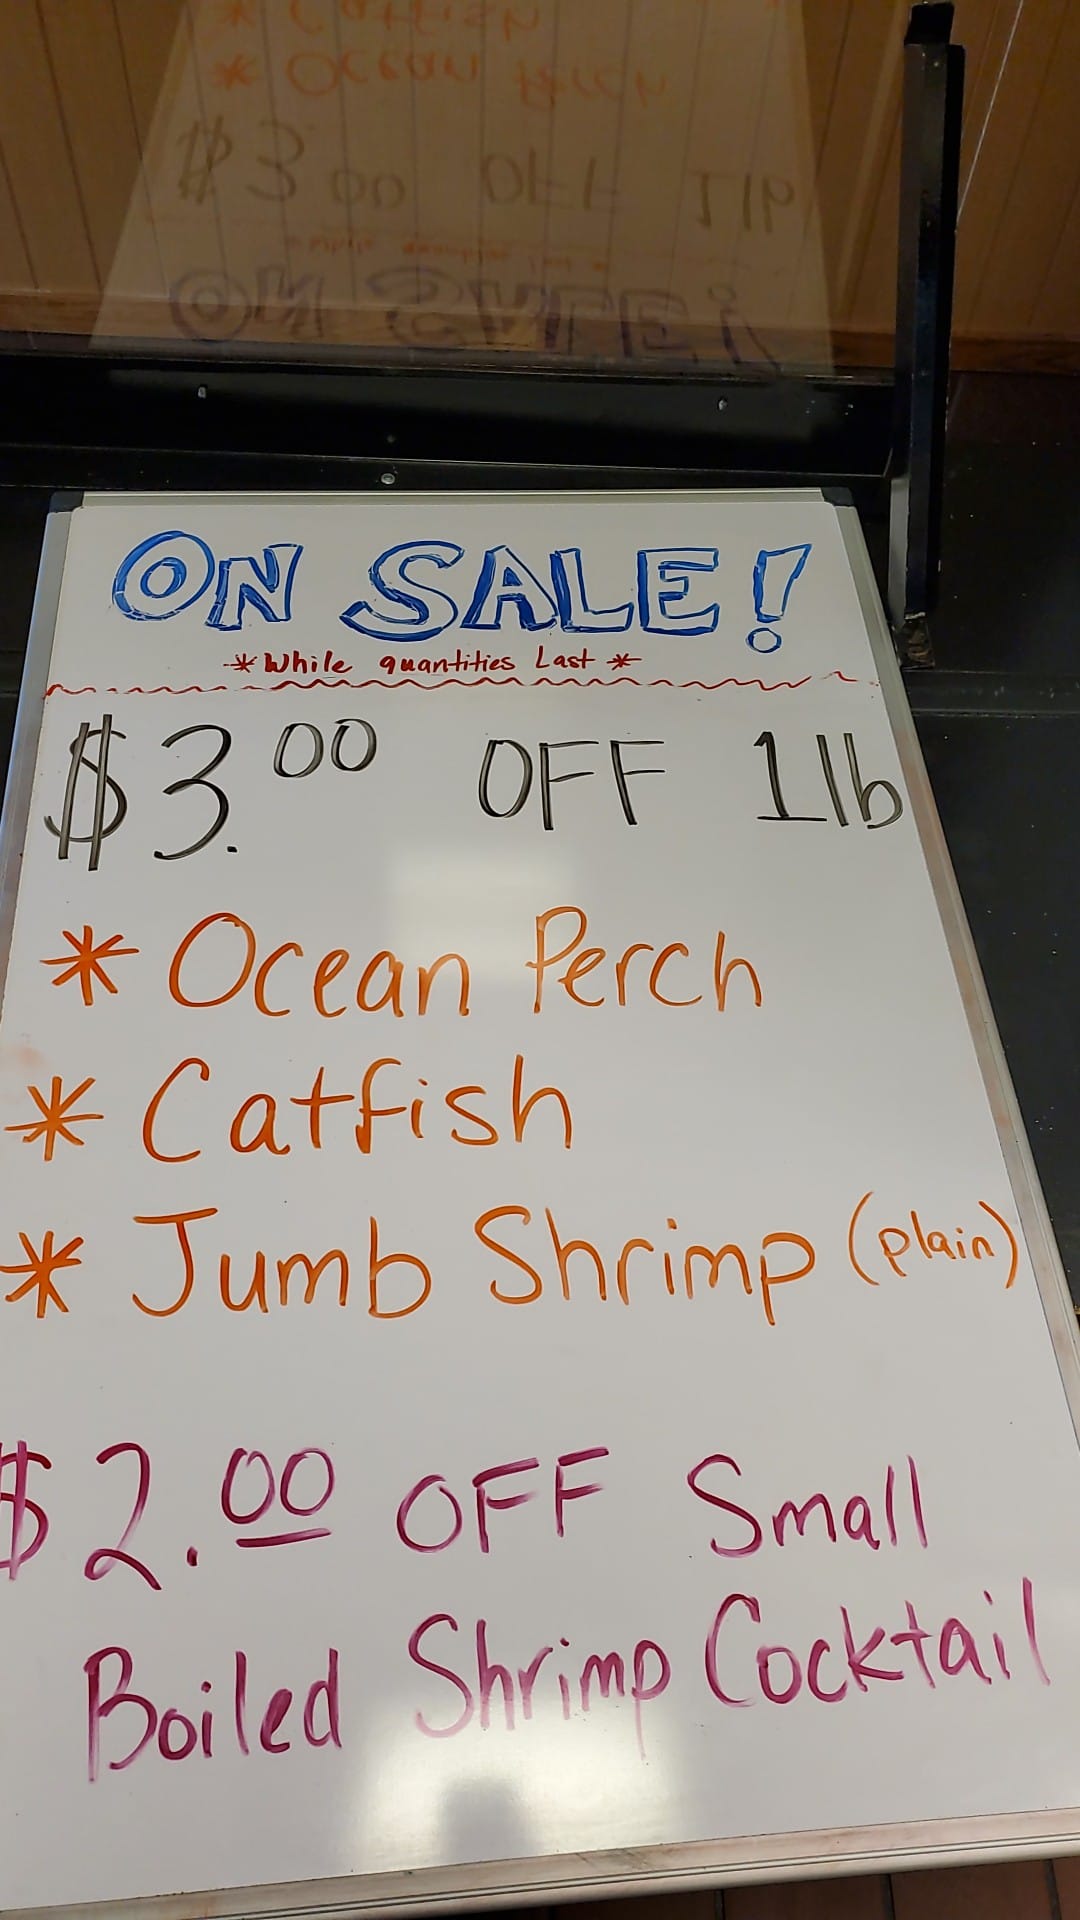 ON SALE!
*While quantities Last*
$3.00 OFF 1lb
* Ocean Perch
* Catfish
* Jumb Shrimp (plain)
$2.00 OFF Small
Boiled Shrimp Cocktail